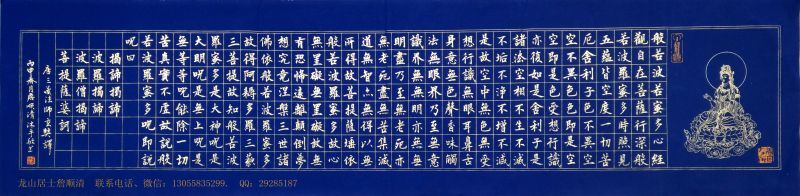 般若波羅蜜多心經
觀自在菩薩行深般
若波羅蜜多時照見
五蘊皆空度一切苦
厄舍利子色不異空
空不異色色即是空
空即是色受想行識
亦復如是舍利子是
諸法空相不生不滅
不垢不淨不增不減
是故空中無色無受
想行識無眼耳鼻舌
身意無色聲香味觸
法無眼界乃至無意
識界無無明亦無無
明盡乃至無老死亦
無老死盡無苦集滅
道無智亦無得以無
所得故菩提薩埵依
般若波羅蜜多故心
無罣礙無罣礙故無
有恐怖遠離顛倒夢
想究竟涅槃三世諸
佛依般若波羅蜜多
故得阿耨多羅三藐
三菩提故知般若波
羅蜜多是大神咒是
大明咒是無上咒是
無等等咒能除一切
苦真實不虛故說般
若波羅蜜多咒即說
咒曰
揭諦揭諦
波羅揭諦
波羅僧揭諦
菩提薩婆訶
唐三藏法師玄奘譯
丙申月詹順清沐手敬書
龙山居士詹顺清 联系电话、微信：13055835299. QQ：29285187